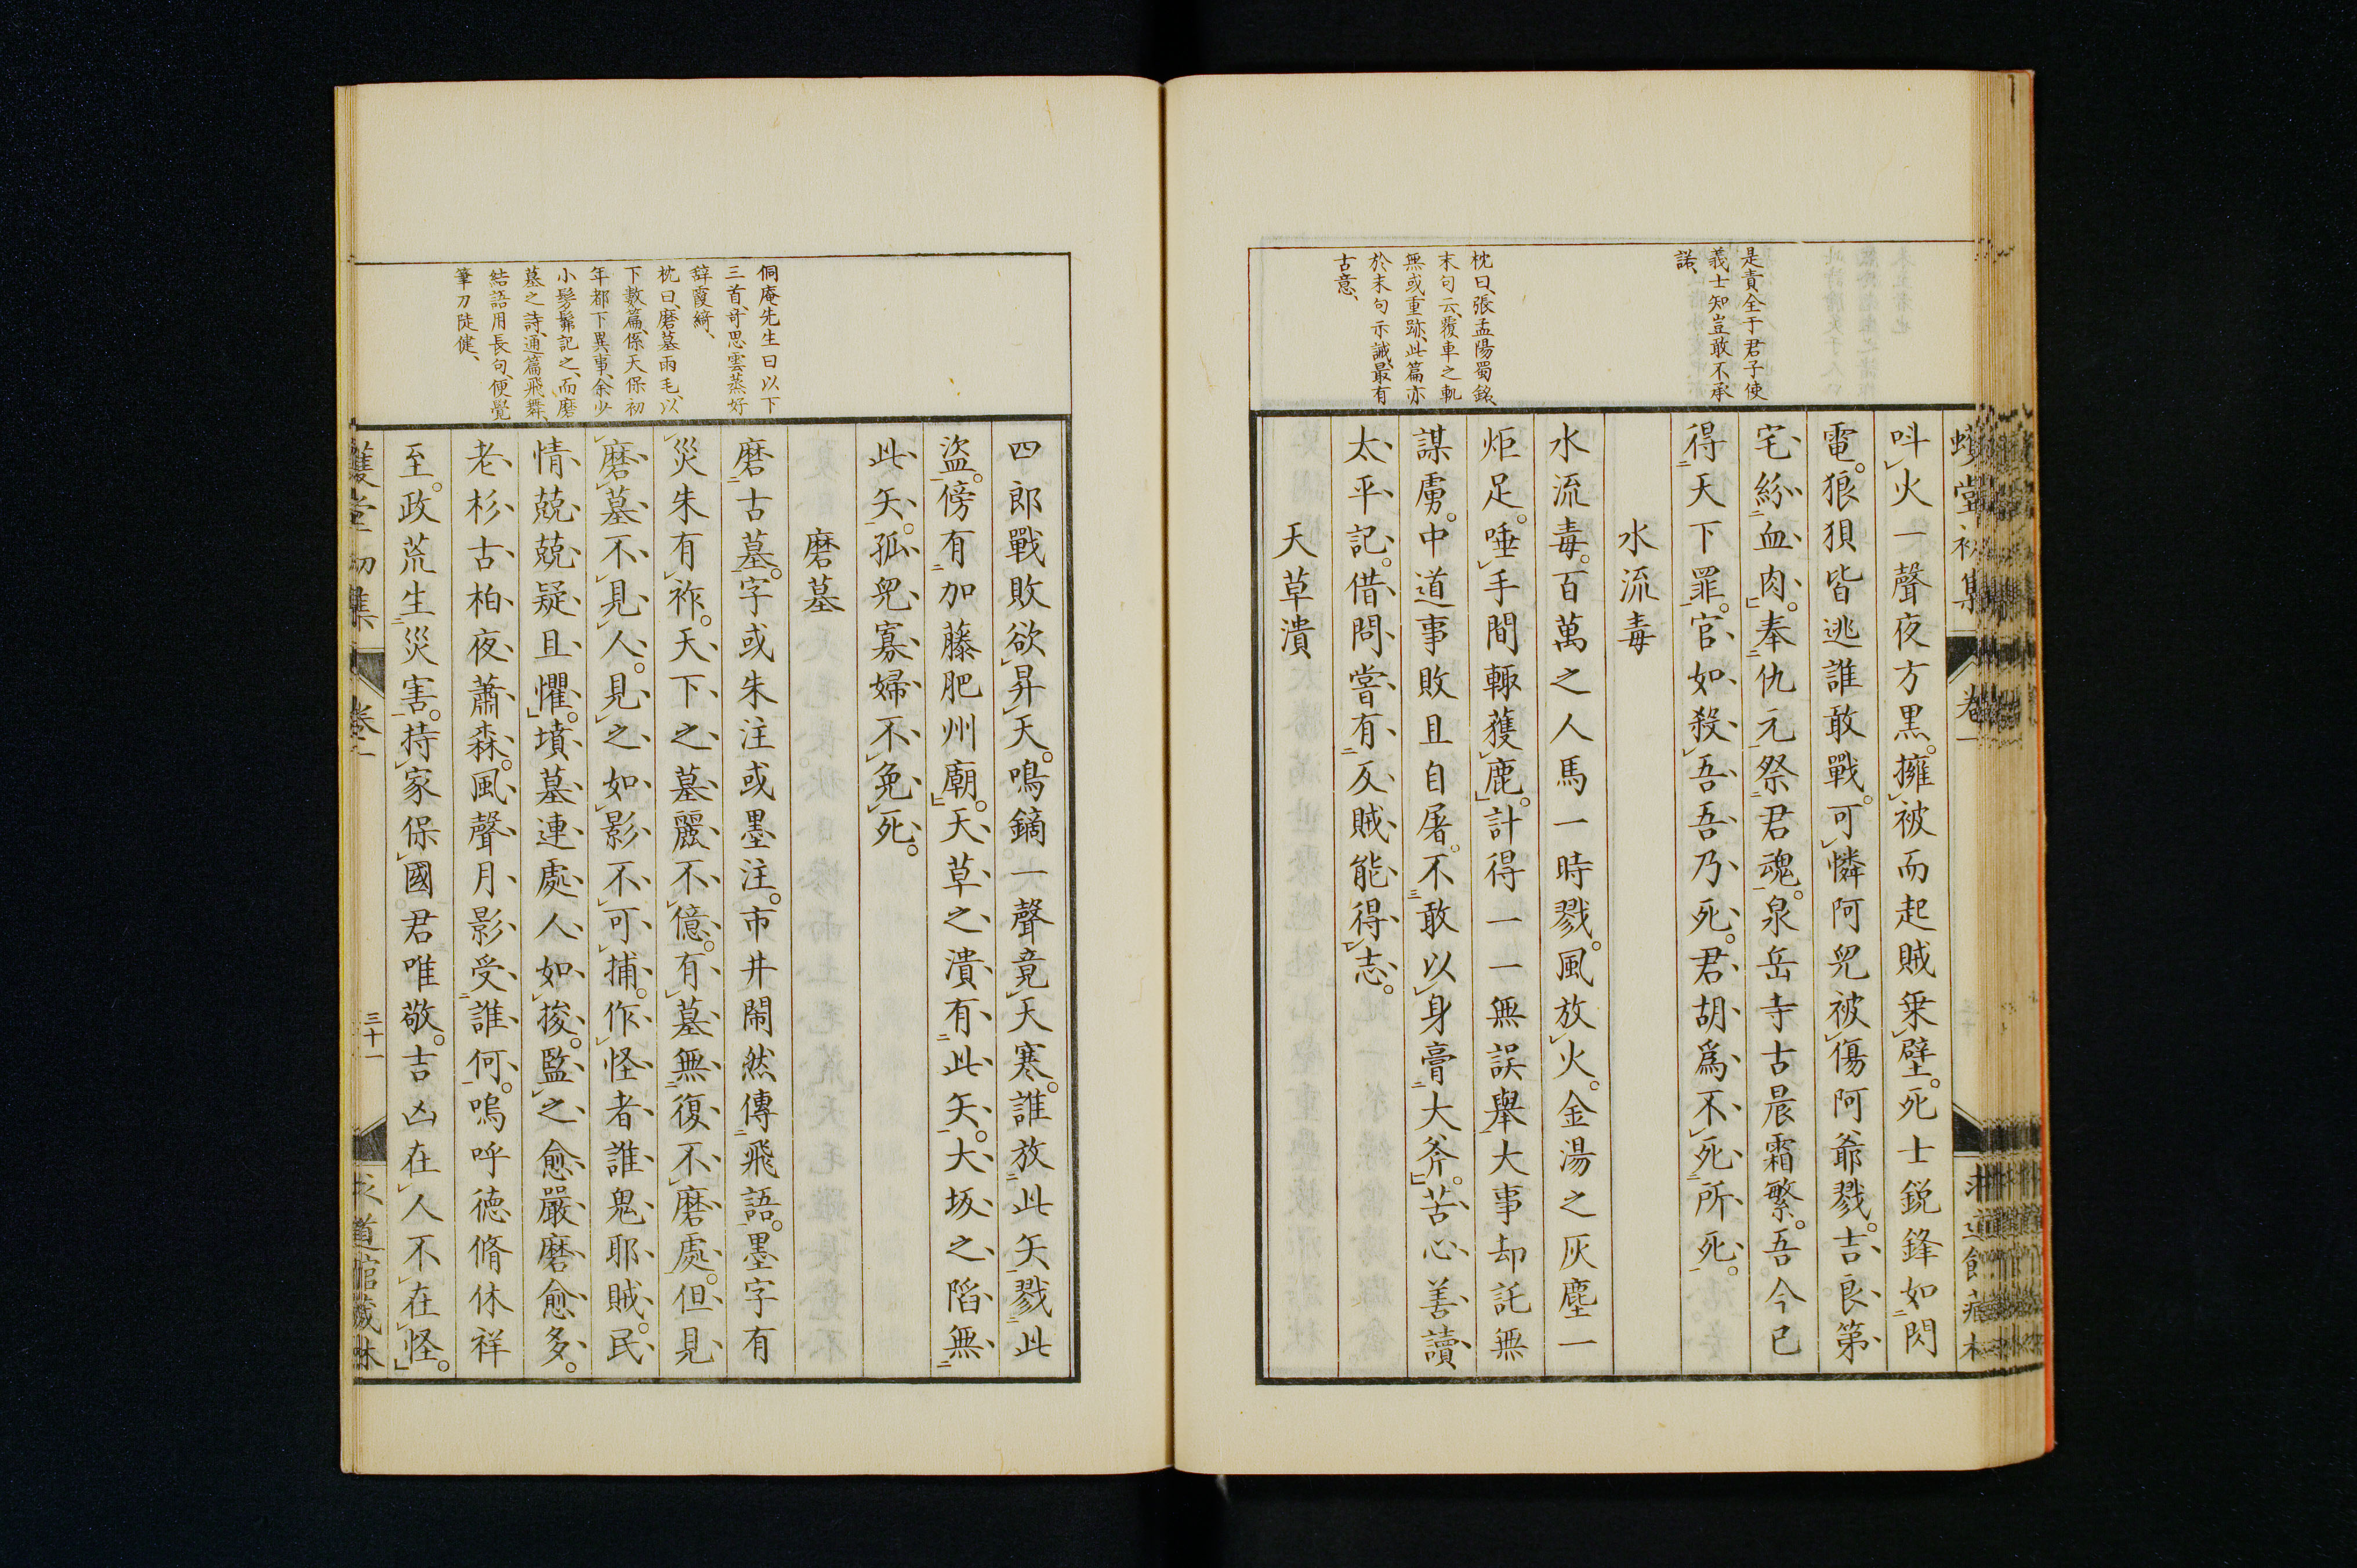 是責全于君子使
義士知豈敢不承
諾、
枕曰、張孟陽蜀銘、
末句云、覆車之軌
無或重跡、此篇亦
於末句示誡、最有
古意、
呌火一聲夜方黒。擁被而起賊乗壁。死士鋭鋒如閃
電。狼狽皆逃誰敢戰。可憐阿兒被傷阿爺戮。吉良第
宅紛血肉。奉仇元祭君魂。泉岳寺古晨霜繁。吾今已
得天下罪。官如殺吾吾乃死。君胡爲不死所死。
水流毒
水流毒。百萬之人馬一時戮。風放火。金湯之灰塵一
炬足。唾手間輙獲鹿。計得一一無誤舉大事却託無
謀虜。中道事敗且自屠。不敢以身膏大斧。苦心善讀
太平記。借問嘗有反賊能得志。
天草潰
侗庵先生曰以下
三首、奇思雲蒸好
辞霞綺、
枕曰、磨墓雨毛、以
下數篇、係天保初
年都下異事、余少
小髣髴記之、而磨
墓之詩、通篇飛舞、
結語用長句、便覺
筆力陡健、
四郎戰敗欲昇天。鳴鏑一聲竟天寒。誰放此矢戮此
盜。傍有加藤肥州廟。天草之潰有此矢。大坂之陷無
此矢。孤兒寡婦不免死。
磨墓
磨古墓。字或朱注或墨注。市井閙然傳飛語。墨字有
災朱有祚。天下之墓麗不億。有墓無復不磨處。但見
磨墓不見人。見之如影不可捕。作怪者誰鬼耶賊。民
情兢兢疑且懼。墳墓連處人如梭。監之愈嚴磨愈多。
老杉古柏夜蕭森。風聲月影受誰何。嗚呼德脩休祥
至。政荒生災害。持家保國君唯敬。吉凶在人不在怪。
卷一
三十一